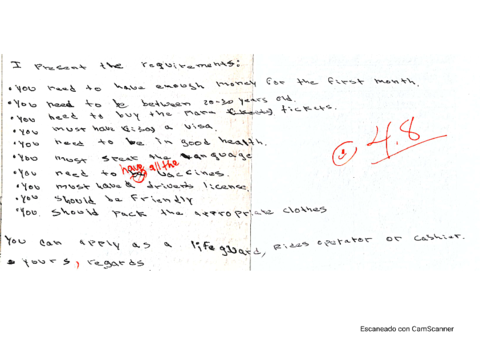 I Present the requirements:
• You need to have enough money for the first month.
• You need to be between 20-30 years old.
• You need to buy the plane tickets.
• You must have a visa.
• You need to be in good health.
• You must speak the language
• You need to have all the vaccines.
• You must have a driver's license.
• You should be Friendly
• You should pack the appropriate clothes
4.8
You can apply as a lifeguard, rides operator or cashier.
Yours, regards
Escaneado con CamScanner